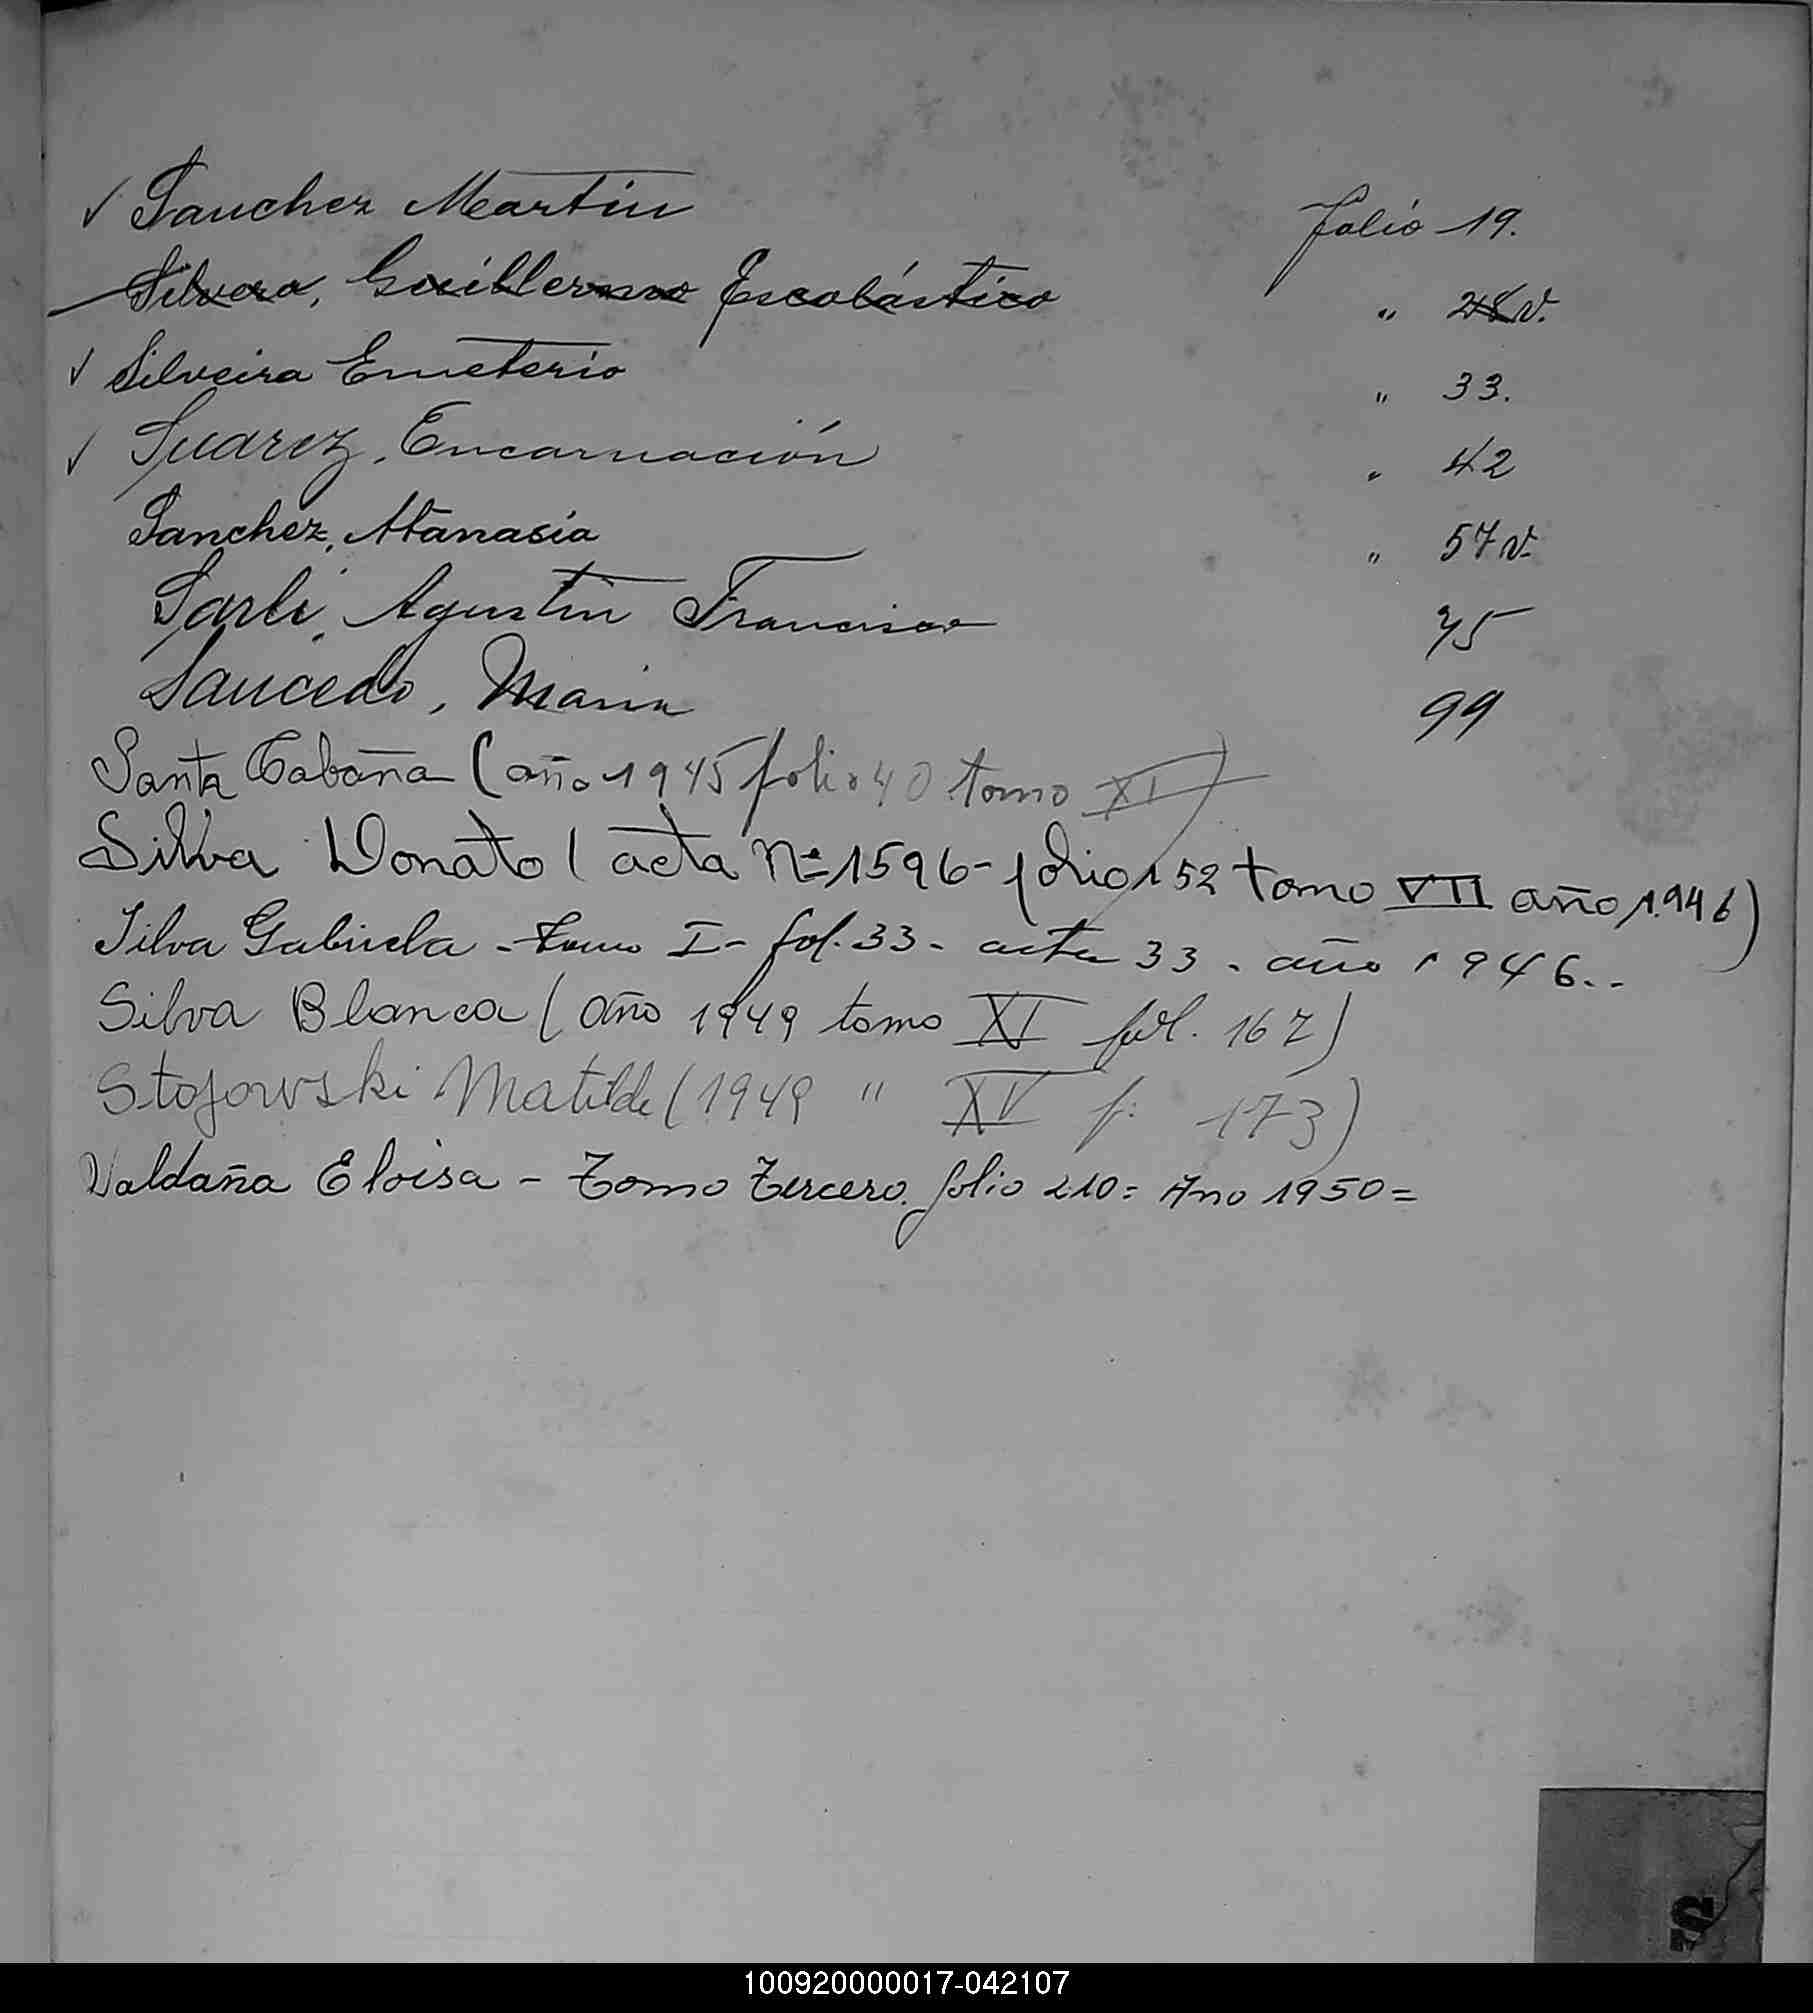 ✓ Sanchez Martin Folio 19.
Silvera, Guillermo Escolástico " 28 v.
✓ Silveira Emeterio " 33.
✓ Suarez, Encarnación " 42
Sanchez, Atanasia " 57 v.
Sarli, Agustin Francisco 75
Saucedo, Maria 99
Santa Cabaña (año 1945 folio 40 tomo XI)
Silva Donato (acta Nº 1596 - folio 152 tomo VII año 1.946)
Silva Gabriela - tomo I - fol. 33 - acta 33 - año 1946..
Silva Blanca (año 1949 tomo XI fol. 167)
Stojowski Matilde (1949 " XV f: 173)
Valdaña Eloisa - Tomo Tercero. folio 210 = Ano 1950 =
S
100920000017-042107